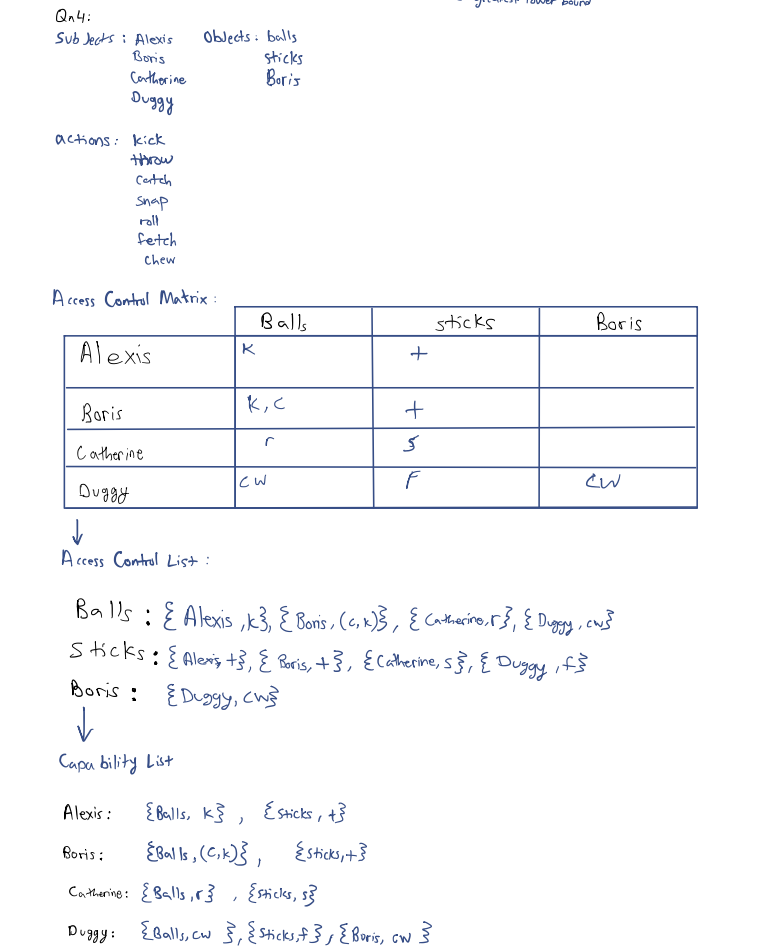 greatest lower bound
Qn4:
Subjects : Alexis Objects : balls
Boris sticks
Catherine Boris
Duggy
actions : kick
throw
Catch
Snap
roll
fetch
chew
Access Control Matrix :
Balls sticks Boris
Alexis K t
Boris K, C t
Catherine r s
Duggy CW F CW
↓
Access Control List :
Balls : {Alexis, k}, {Boris, (c, k)}, {Catherine, r}, {Duggy, cw}
Sticks : {Alexis, t}, {Boris, t}, {Catherine, s}, {Duggy, f}
Boris : {Duggy, cw}
↓
Capability List
Alexis: {Balls, k}, {Sticks, t}
Boris: {Balls, (C, k)}, {Sticks, t}
Catherine: {Balls, r}, {Sticks, s}
Duggy: {Balls, cw}, {Sticks, f}, {Boris, cw}